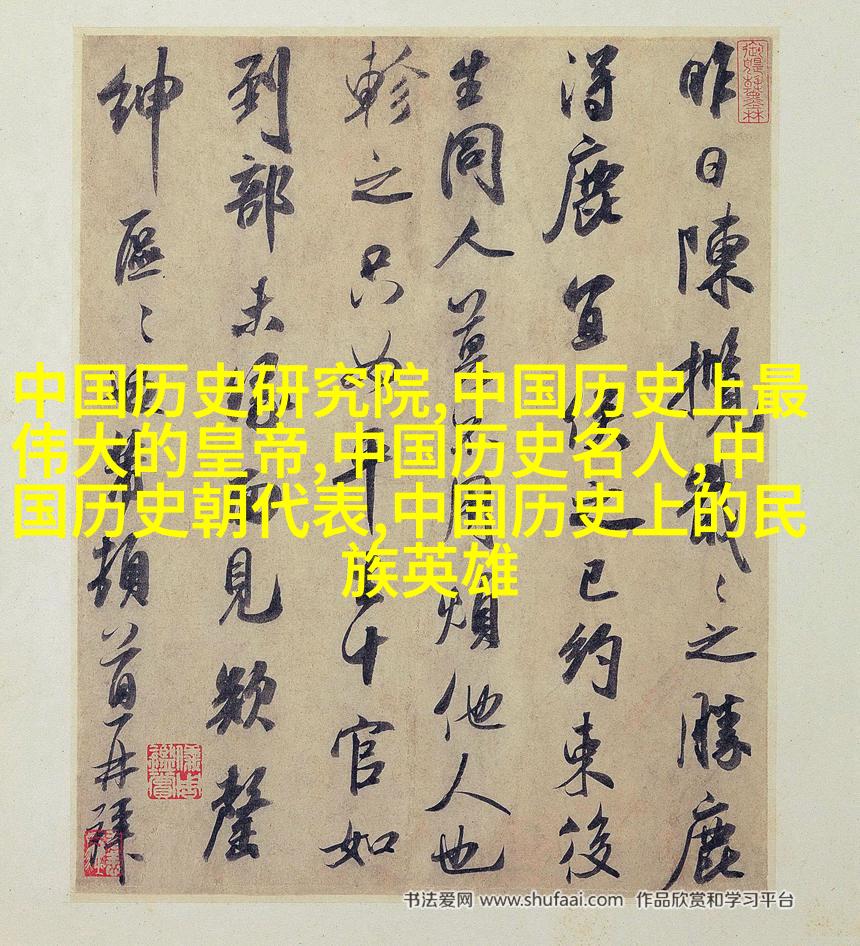 昨日陳攬戢之勝鹿
得鹿宜俟之已約束後
生同人莫不用煩他人也
軫之只如平生十官如
到部未得而見欵罄
紳區頓首再拜
中国历史研究院,中国历史上最
伟大的皇帝,中国历史名人,中
国历史朝代表,中国历史上的民
族英雄
书法爱网 www.shufaai.com 作品欣赏和学习平台